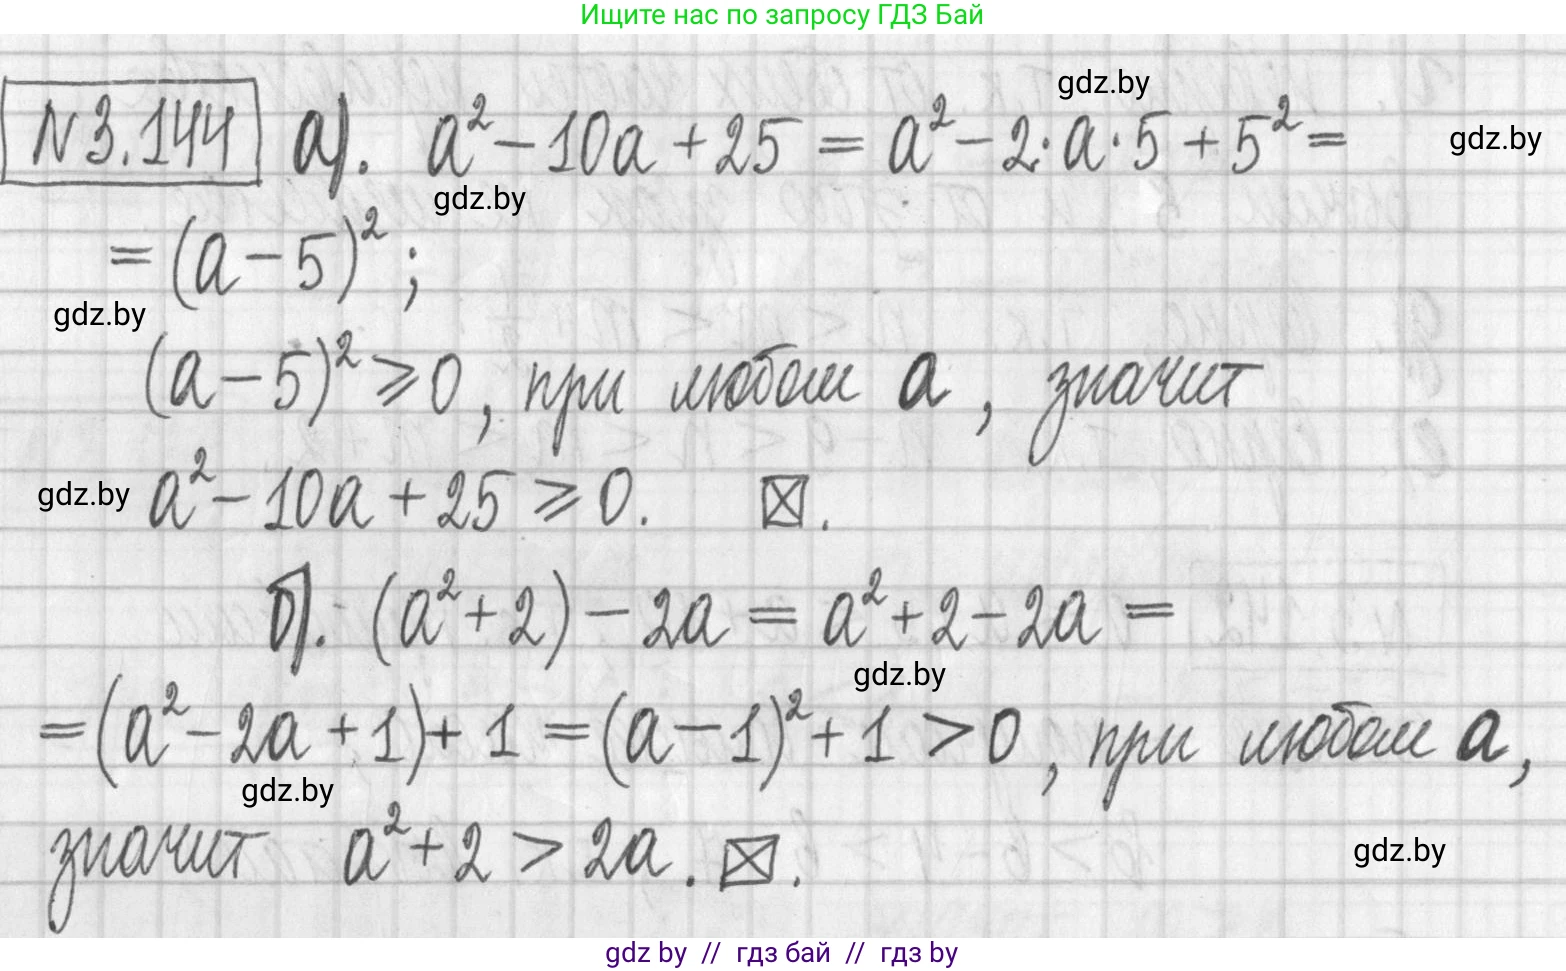 Ищите нас по запросу ГДЗ Бай
gdz.by
N3.144 а). a² − 10a + 25 = a² − 2·a·5 + 5² =
gdz.by
gdz.by
= (a − 5)² ;
gdz.by
(a − 5)² ⩾ 0, при любом a, значит
gdz.by a² − 10a + 25 ⩾ 0. ⊠.
б). (a² + 2) − 2a = a² + 2 − 2a =
gdz.by
= (a² − 2a + 1) + 1 = (a − 1)² + 1 > 0, при любом a,
gdz.by
значит a² + 2 > 2a. ⊠.
gdz.by
gdz by // гдз бай // гдз by